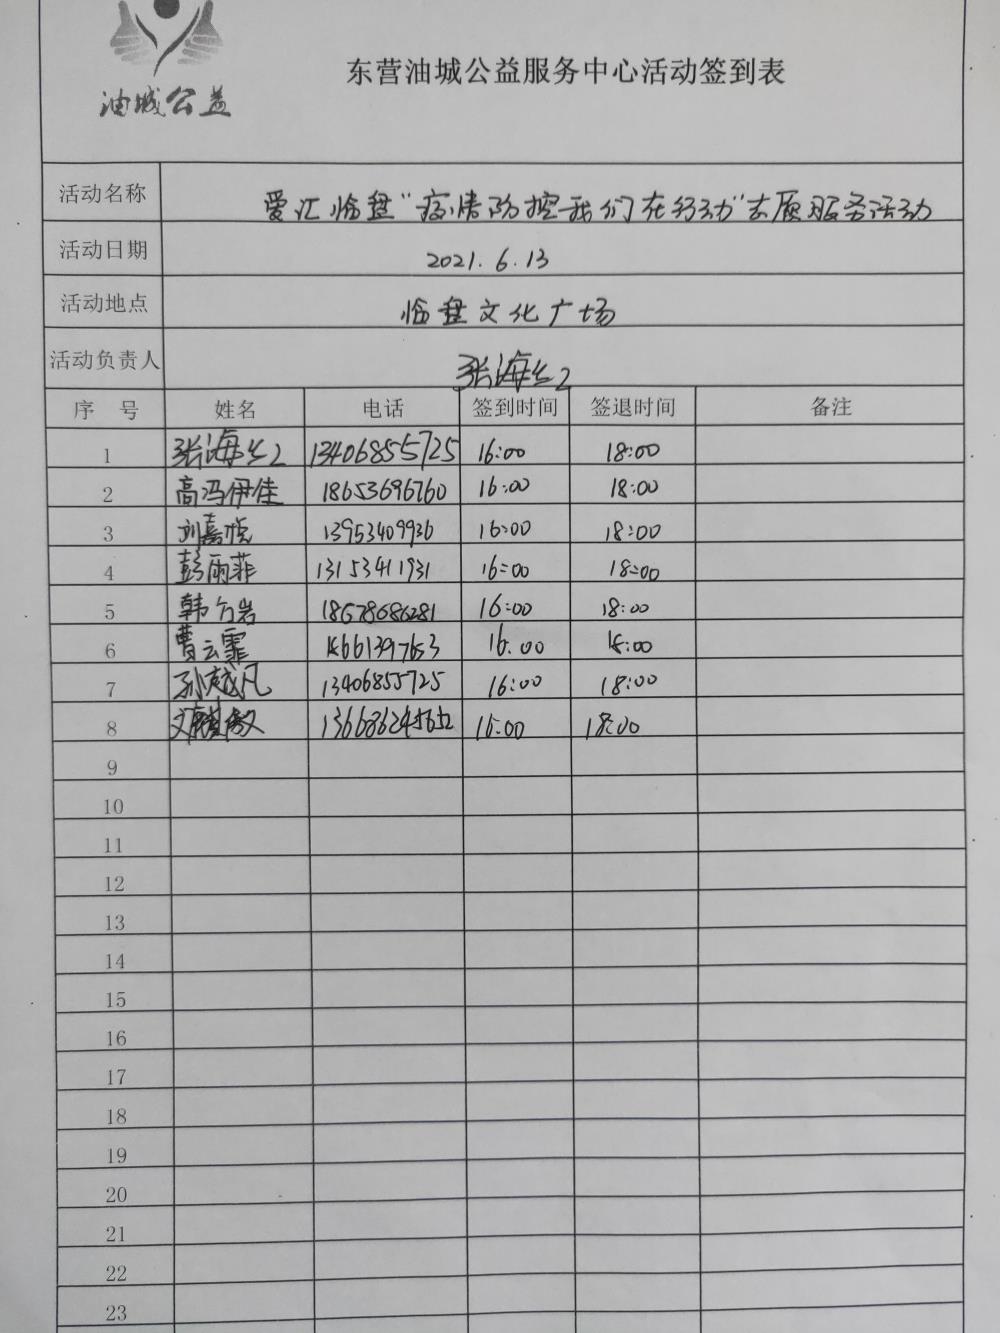 油城公益
东营油城公益服务中心活动签到表
活动名称 爱汇临盘“疫情防控我们在行动”志愿服务活动
活动日期 2021.6.13
活动地点 临盘文化广场
活动负责人 张海
序号 姓名 电话 签到时间 签退时间 备注
1 张海 13406855725 16:00 18:00
2 高冯伊佳 18653696760 16:00 18:00
3 刘嘉悦 13953409936 16:00 18:00
4 彭雨菲 13153411931 16:00 18:00
5 韩 岩 18678686281 16:00 18:00
6 曹云霏 16.00 18:00
7 孙越凡 13406855725 16:00 18:00
8 16:00 18:00
9
10
11
12
13
14
15
16
17
18
19
20
21
22
23